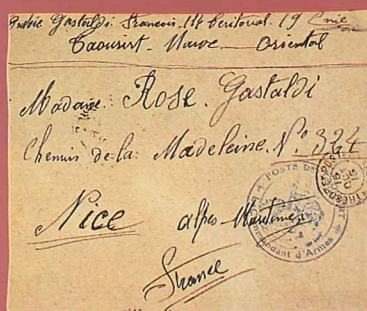 Gastaldi Francois. 14 Territorial. 19 Cnie
Taourirt - Maroc - Oriental
Madame Rose Gastaldi
Chemin de la Madeleine. No 324
Nice Alpes-Maritimes
France
POSTE DE
Commandant d'Armes